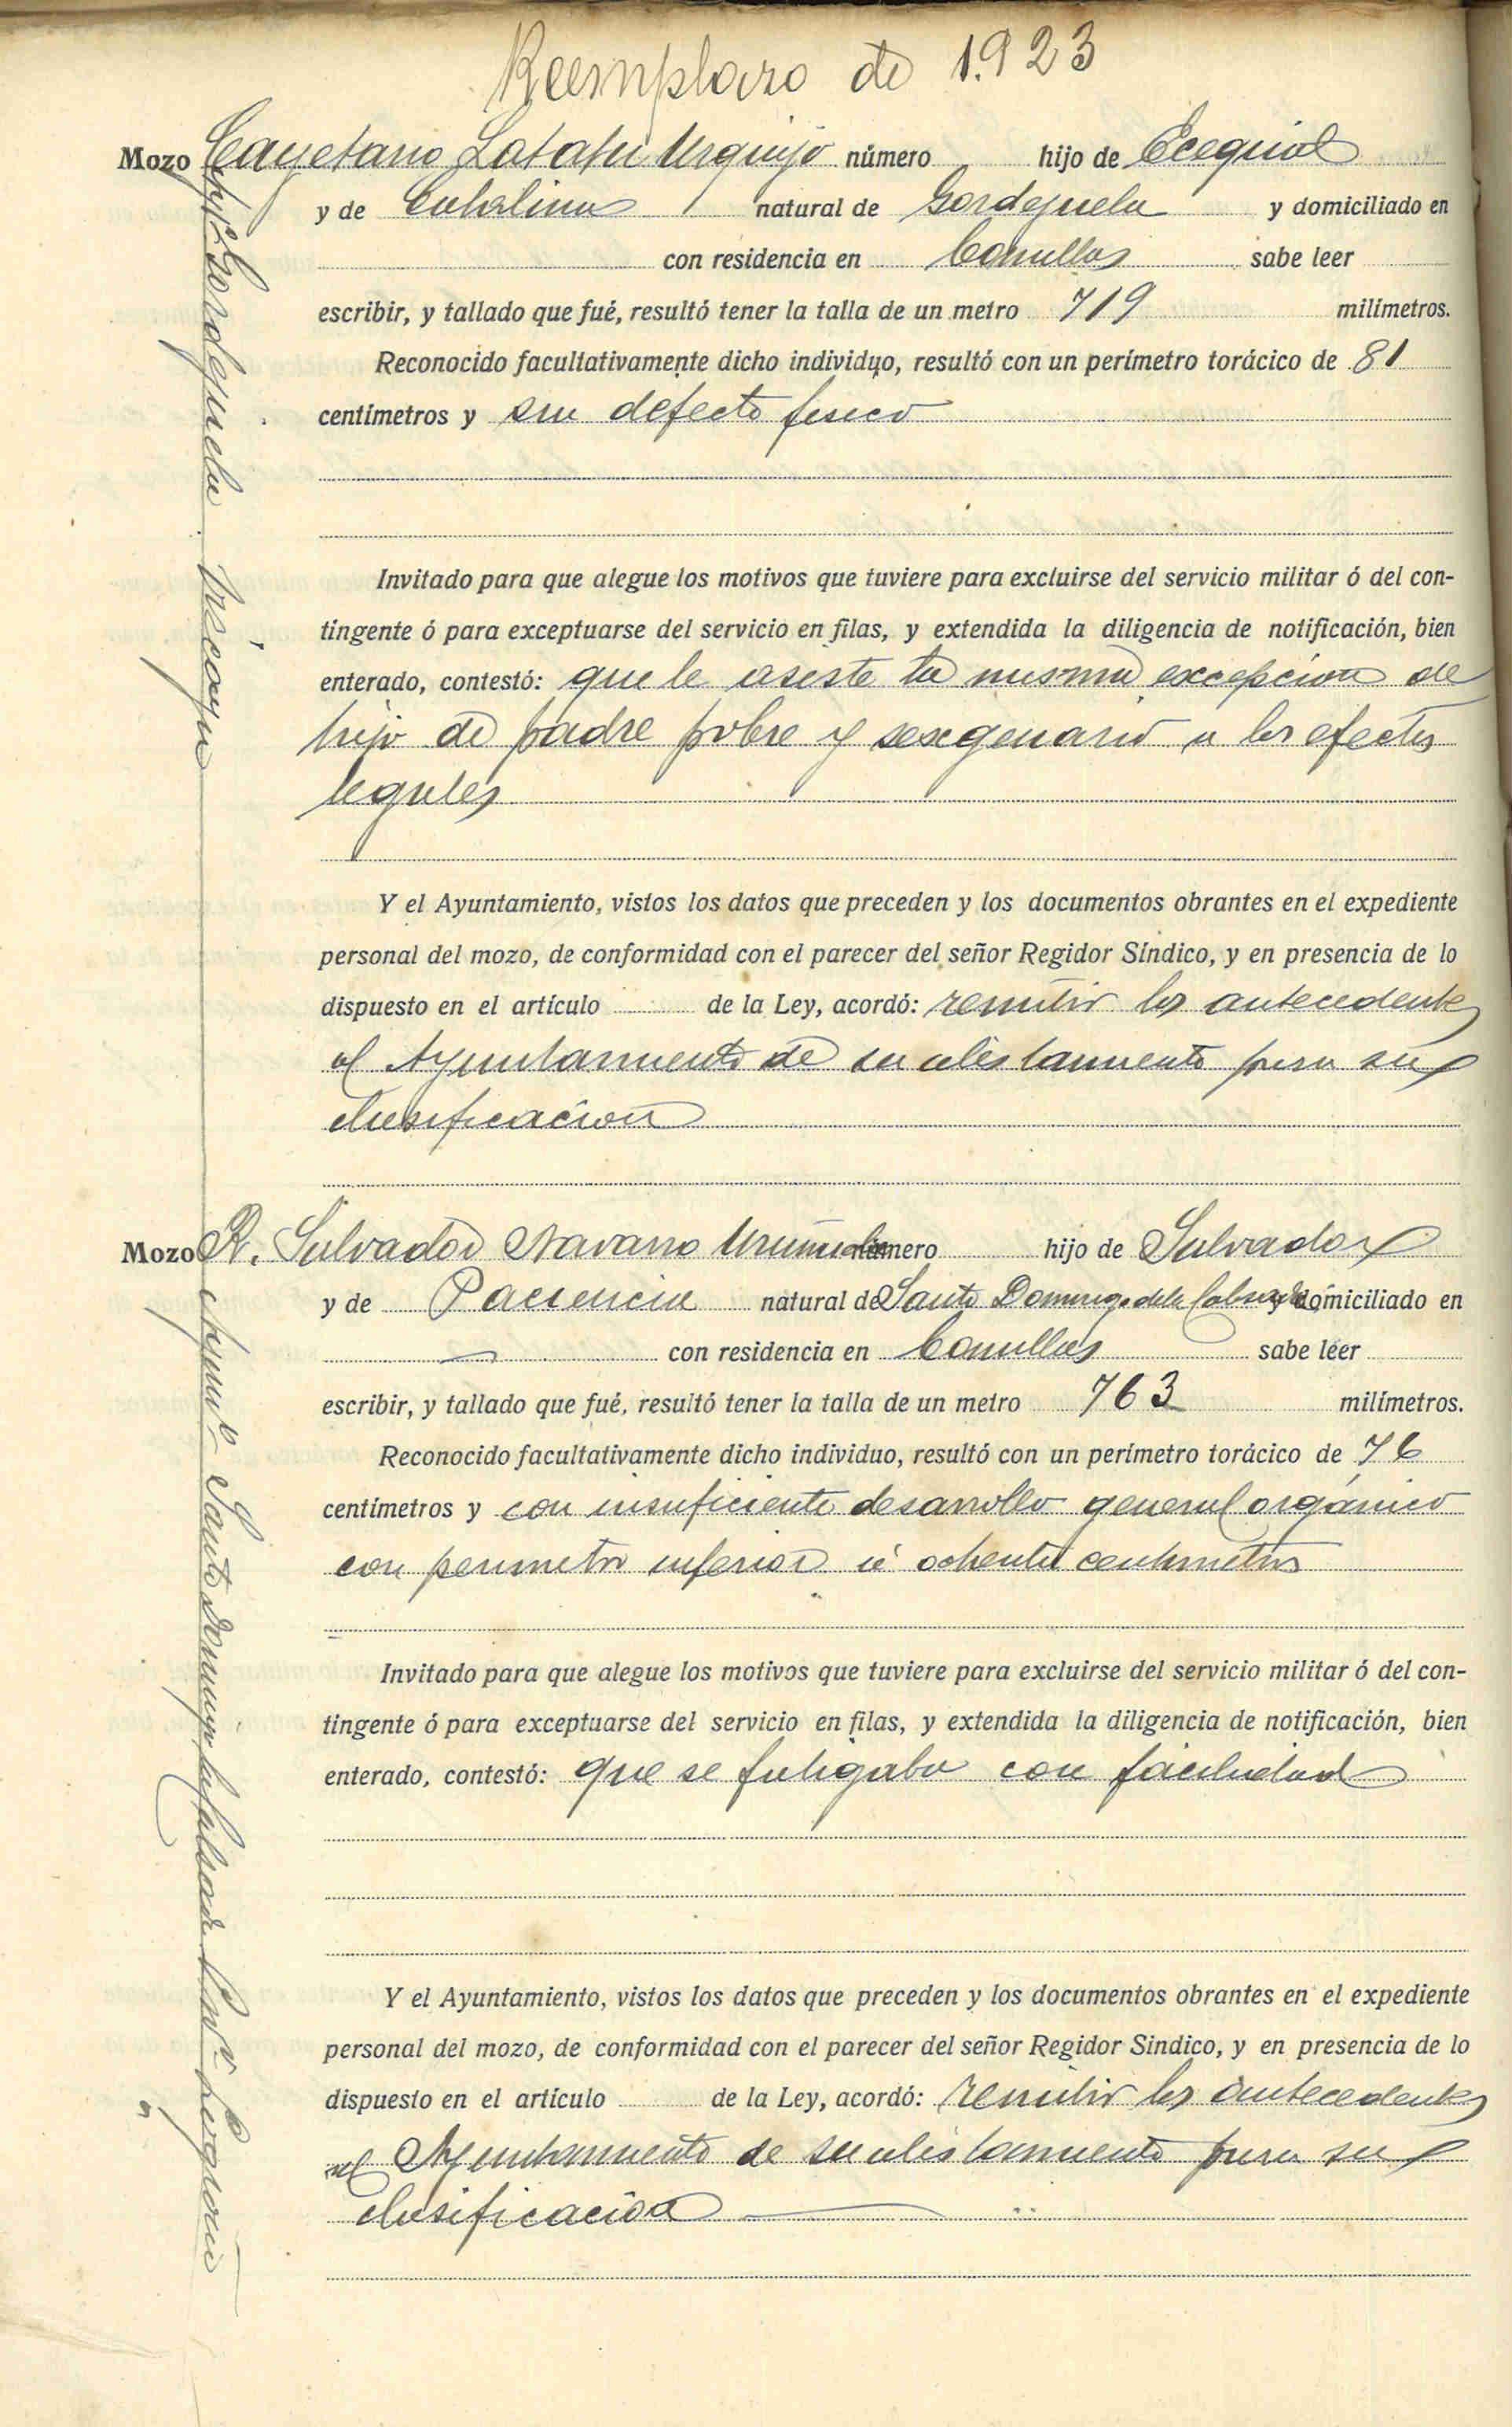 Reemplazo de 1.923
Mozo Cayetano Latatu Urquijo número hijo de Ecequiel
y de Catalina natural de Gordejuela y domiciliado en
con residencia en Comillas sabe leer
escribir, y tallado que fué, resultó tener la talla de un metro 719 milímetros.
Reconocido facultativamente dicho individuo, resultó con un perímetro torácico de 81
centímetros y sin defecto fisico
Invitado para que alegue los motivos que tuviere para excluirse del servicio militar ó del con-
tingente ó para exceptuarse del servicio en filas, y extendida la diligencia de notificación, bien
enterado, contestó: que le asiste la misma excepcion de
hijo de padre pobre y sexgenario a los efectos
legales
Y el Ayuntamiento, vistos los datos que preceden y los documentos obrantes en el expediente
personal del mozo, de conformidad con el parecer del señor Regidor Síndico, y en presencia de lo
dispuesto en el artículo de la Ley, acordó: remitir los antecedentes
al Ayuntamiento de su alistamiento para su
clasificacion
Gordejuela Vizcaya
Mozo R. Salvador Navarro número hijo de Salvador
y de Paciencia natural de Santo Domingo de la Calzada y domiciliado en
con residencia en Comillas sabe leer
escribir, y tallado que fué, resultó tener la talla de un metro 763 milímetros.
Reconocido facultativamente dicho individuo, resultó con un perímetro torácico de 76
centímetros y con insuficiente desarrollo general orgánico
con perimetro inferior á ochenta centimetros
Invitado para que alegue los motivos que tuviere para excluirse del servicio militar ó del con-
tingente ó para exceptuarse del servicio en filas, y extendida la diligencia de notificación, bien
enterado, contestó: que se fatigaba con facilidad
Y el Ayuntamiento, vistos los datos que preceden y los documentos obrantes en el expediente
personal del mozo, de conformidad con el parecer del señor Regidor Síndico, y en presencia de lo
dispuesto en el artículo de la Ley, acordó: remitir los antecedentes
al Ayuntamiento de su alistamiento para su
clasificacion
Santo Domingo la Calzada Logroño